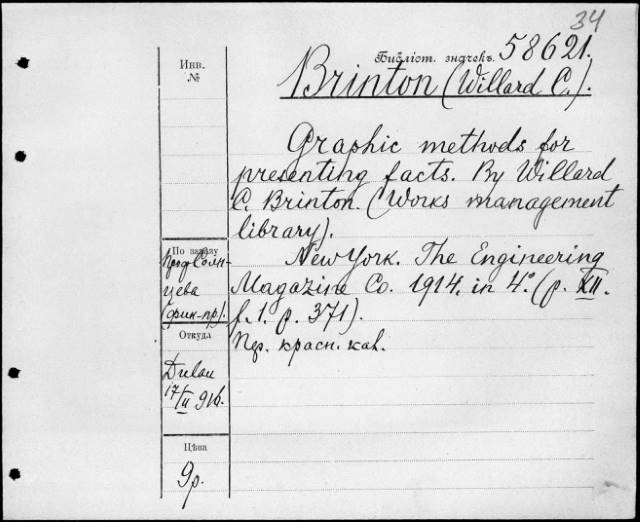 34
Библіот. значекъ. 58621.
Brinton (Willard C.).
Инв.
№
Graphic methods for
presenting facts. By Willard
C. Brinton. (Works management
library).
New York. The Engineering
Magazine Co. 1914. in 4°. (p. XII.
f. 1. p. 371).
Пер. красн. кал.
По заказу
Проф. Солн-
цева
(фин-пр).
Откуда
Dulau
17/II 916.
Цѣна
9р.